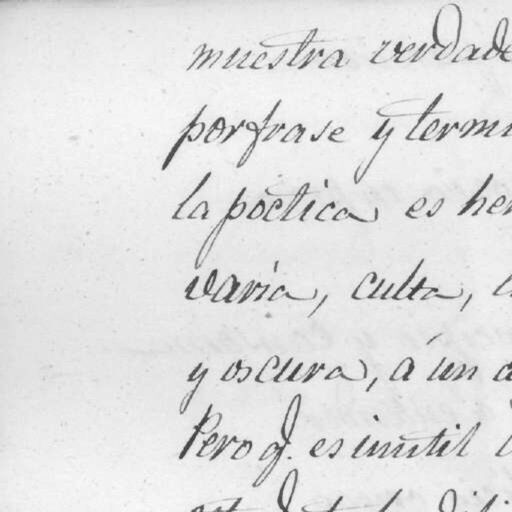 muestra verdade
por frase y termi
la poetica es her
varia, culta,
y oscura, á un
Pero q. es inutil